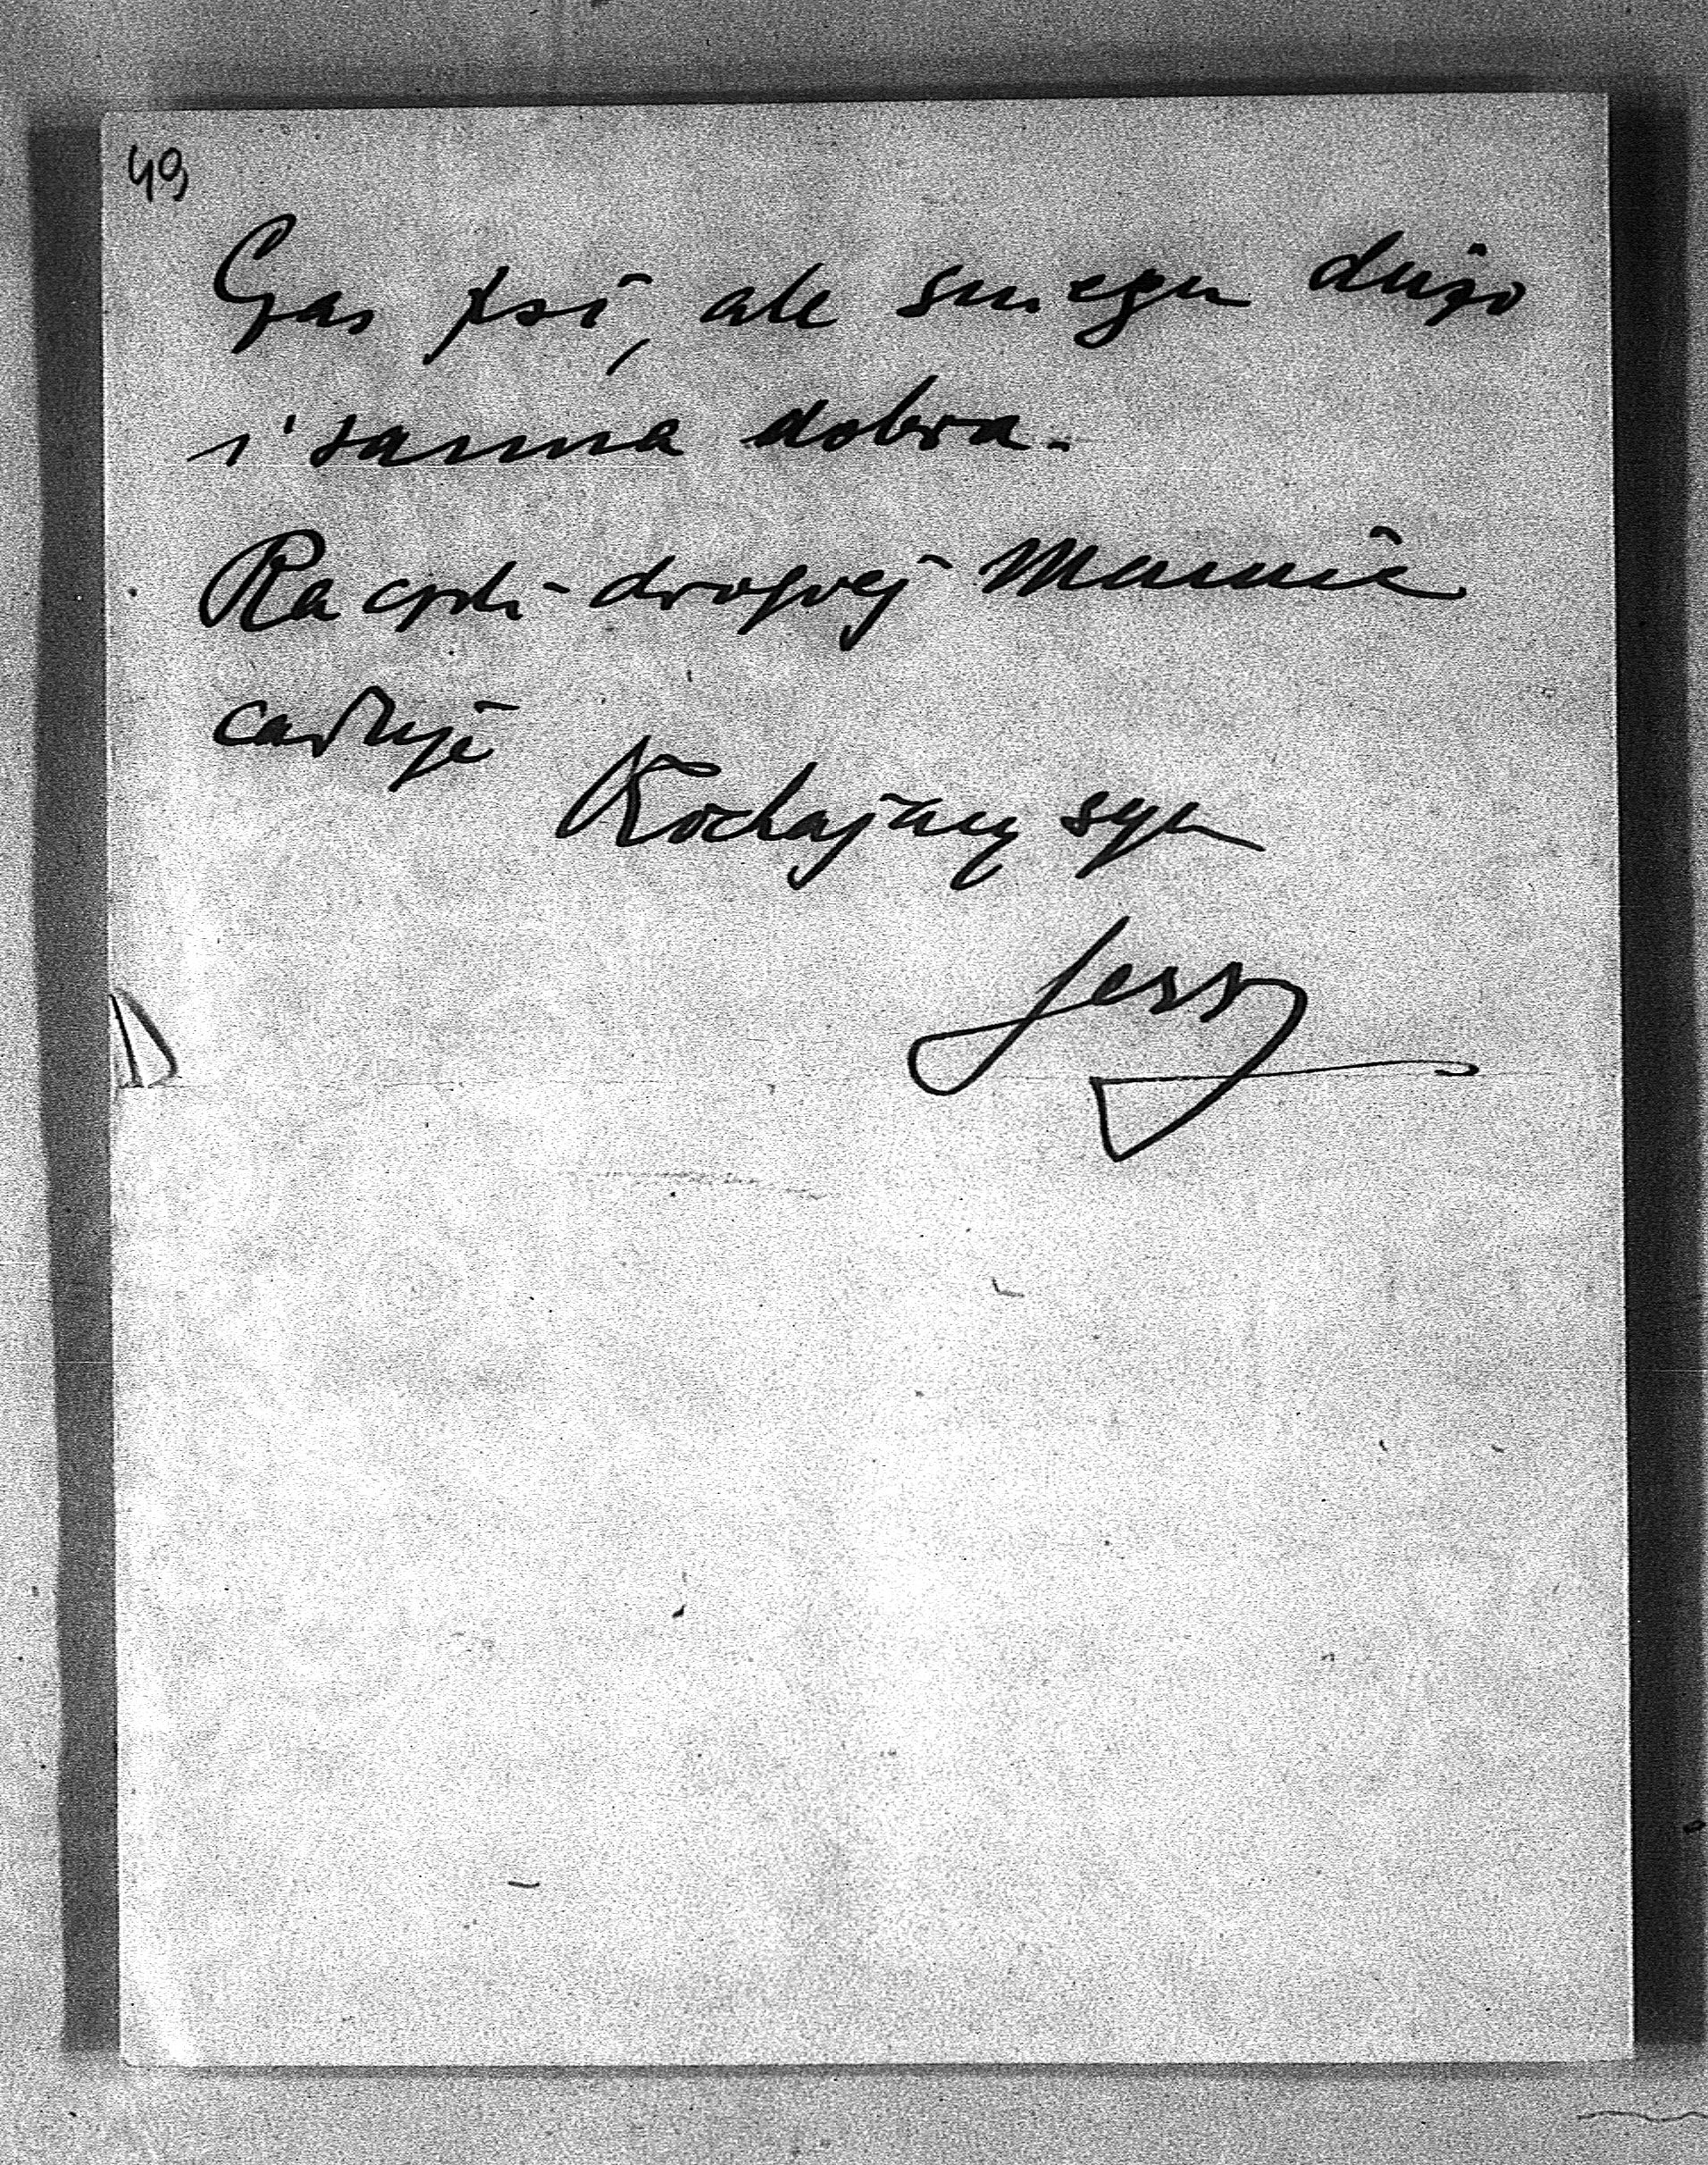 49
Czas psi, ale śniegu dużo
i sanna dobra.
Rączki drogiej Mamie
całuję
Kochający syn
Jerzy